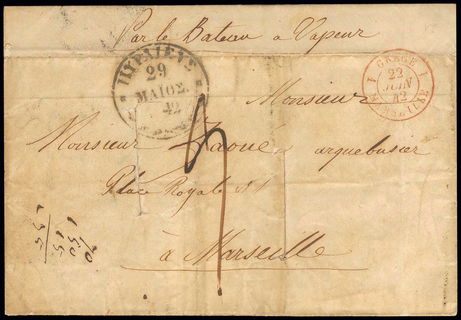 Par le Bateau à Vapeur
ΠΕΙΡΑΙΕΥΣ
29
ΜΑΪΟΣ.
42
1 GRÈCE 1
22
JUIN
42
MARSEILLE
Monsieur
Monsieur Zaoue arquebusier
Place Royale № 1
à Marseille